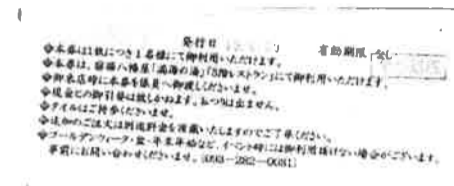 発行日
有効期限 なし
◆本券は1枚につき1名様にて御利用いただけます。
◆本券は、　　八幡屋「満海の湯」「3階レストラン」にて御利用いただけます。
◆御来店時に本券を係員へ御渡しくださいませ。
◆現金との御引替は致しかねます。おつりは出ません。
◆タオルはご持参くださいませ。
◆追加のご注文は別途料金を頂戴いたしますのでご了承ください。
◆ゴールデンウィーク・盆・年末年始など、イベント時には御利用頂けない場合がございます。
事前にお問い合わせくださいませ。(093-282-0031)